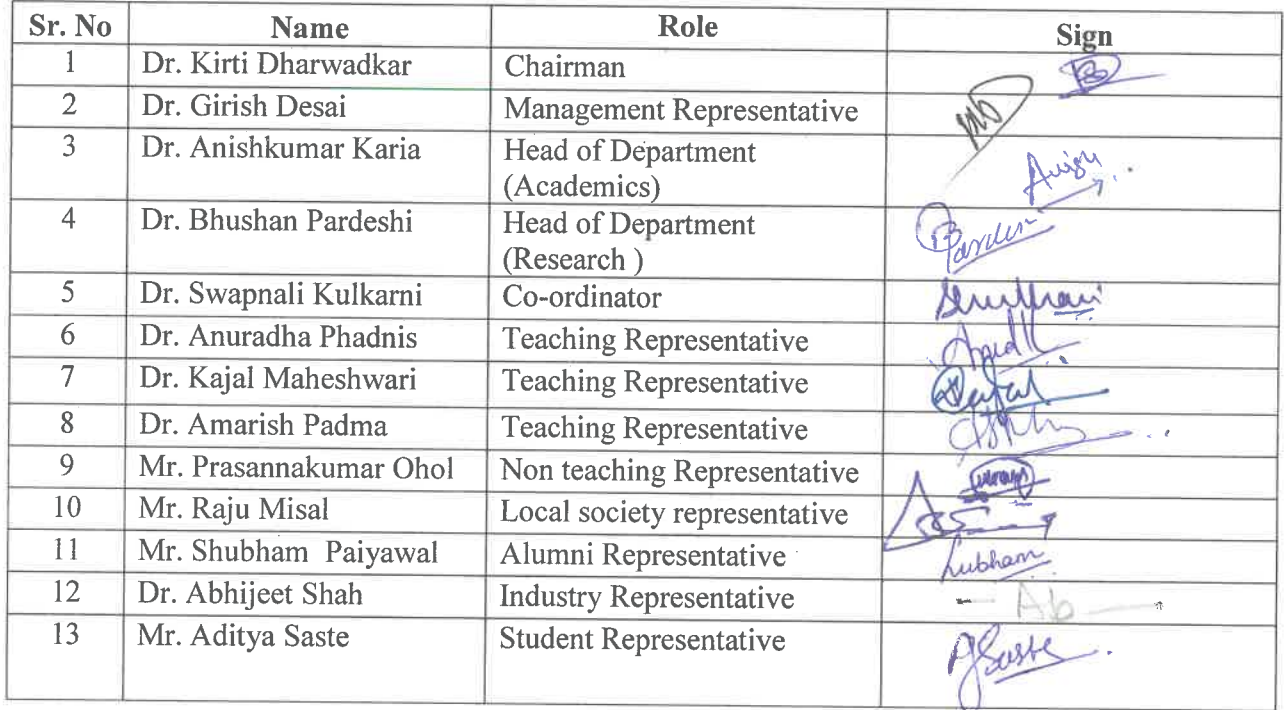 Sr. No Name Role Sign
1 Dr. Kirti Dharwadkar Chairman
2 Dr. Girish Desai Management Representative
3 Dr. Anishkumar Karia Head of Department
(Academics)
4 Dr. Bhushan Pardeshi Head of Department
(Research )
5 Dr. Swapnali Kulkarni Co-ordinator
6 Dr. Anuradha Phadnis Teaching Representative
7 Dr. Kajal Maheshwari Teaching Representative
8 Dr. Amarish Padma Teaching Representative
9 Mr. Prasannakumar Ohol Non teaching Representative
10 Mr. Raju Misal Local society representative
11 Mr. Shubham Paiyawal Alumni Representative
12 Dr. Abhijeet Shah Industry Representative Ab
13 Mr. Aditya Saste Student Representative ASaste